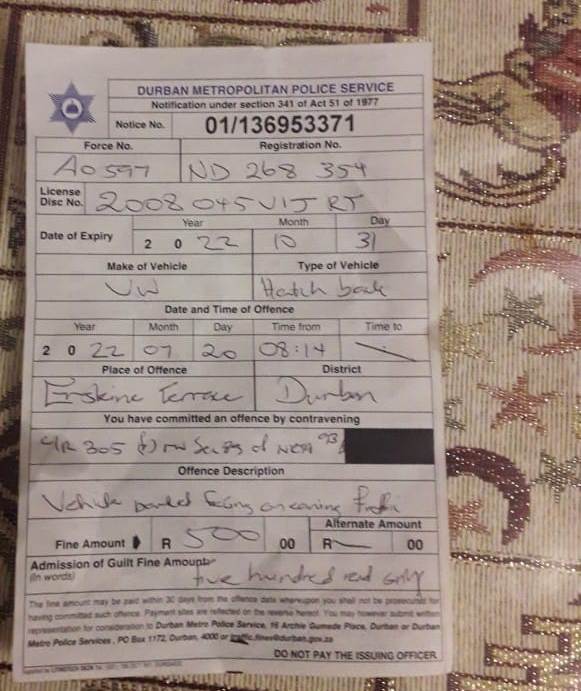 DURBAN METROPOLITAN POLICE SERVICE
Notification under section 341 of Act 51 of 1977
Notice No. 01/136953371
Force No. Registration No.
A0597 ND 268 354
License
Disc No. 2008045V1JRT
Year Month Day
Date of Expiry 2 0 22 10 31
Make of Vehicle Type of Vehicle
VW Hatch back
Date and Time of Offence
Year Month Day Time from Time to
2 0 22 07 20 08:14
Place of Offence District
Erskine Terrace Durban
You have committed an offence by contravening
305 of 93
Offence Description
Vehicle parked facing oncoming
Alternate Amount
Fine Amount R 500 00 R 00
Admission of Guilt Fine Amount
(In words) five hundred rand only
The fine amount may be paid within 30 days from the offence date whereupon you shall not be prosecuted for
having committed such offence. Payment sites are reflected on the reverse hereof. You may however submit written
representation for consideration to Durban Metro Police Service, 16 Archie Gumede Place, Durban or Durban
Metro Police Services, PO Box 1172, Durban, 4000 or traffic.fines@durban.gov.za
DO NOT PAY THE ISSUING OFFICER